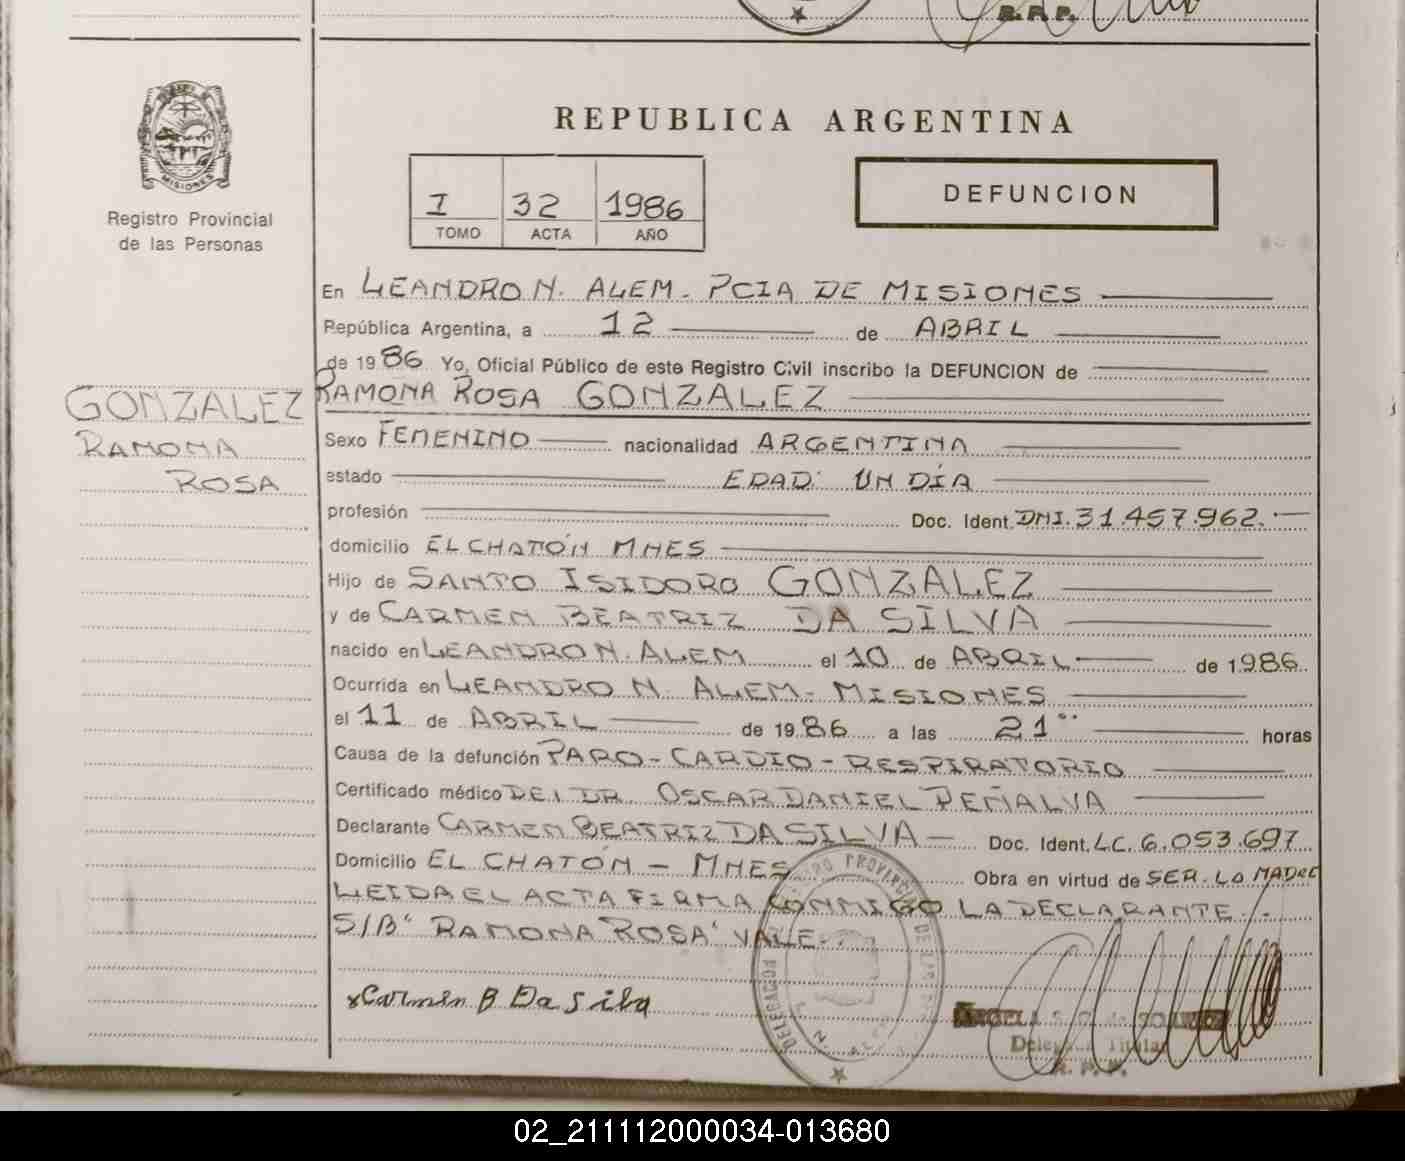 R.P.P.
REPUBLICA ARGENTINA
MISIONES
Registro Provincial
de las Personas
I 32 1986
TOMO ACTA AÑO
DEFUNCION
En LEANDRO N. ALEM - PCIA DE MISIONES
República Argentina, a 12 de ABRIL
de 1986 Yo, Oficial Público de este Registro Civil inscribo la DEFUNCION de
RAMONA ROSA GONZALEZ
GONZALEZ
RAMONA
ROSA
Sexo FEMENINO nacionalidad ARGENTINA
estado EDAD: UN DÍA
profesión Doc. Ident. DNI. 31.457.962.-
domicilio EL CHATÓN MNES
Hijo de SANTO ISIDORO GONZALEZ
y de CARMEN BEATRIZ DA SILVA
nacido en LEANDRO N. ALEM el 10 de ABRIL de 1986
Ocurrida en LEANDRO N. ALEM - MISIONES
el 11 de ABRIL de 1986 a las 21 horas
Causa de la defunción PARO-CARDIO-RESPIRATORIO
Certificado médico DEL DR OSCAR DANIEL PEÑALVA
Declarante CARMEN BEATRIZ DA SILVA - Doc. Ident. LC. 6.053.697
Domicilio EL CHATÓN - MNES Obra en virtud de SER. LA MADRE
LEIDA EL ACTA FIRMA CONMIGO LA DECLARANTE.-
S/B "RAMONA ROSA" VALE-.
xCarmen B Da Silva
REGISTRO PROVINCIAL DE
DELEGACION L. N. ALEM
ANGELA S.
Delegada Titular
R. P. P.
02_211112000034-013680